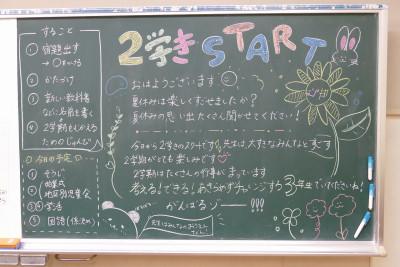 すること
① 宿題出す
→ 〇をつける
② かたづけ
③ 新しい教科書
などに名前を書く
④ 2学期をむかえる
ためのじゅんび
今日の予定
① そうじ
② 始業式
③ 地区別児童会
④ 学活
⑤ 国語(係決め)
2学きSTART
おはようございます
夏休みは楽しくすごせましたか?
夏休みの思い出たくさん聞かせてくださいね!
今日から2学きのスタートです。先生は大すきなみんなとすごす
2学期がとても楽しみです♡
2学期はたくさんの行事がまっています
考える!できる!あきらめずチャレンジする3年生でいたいね!
がんばるゾー!!!